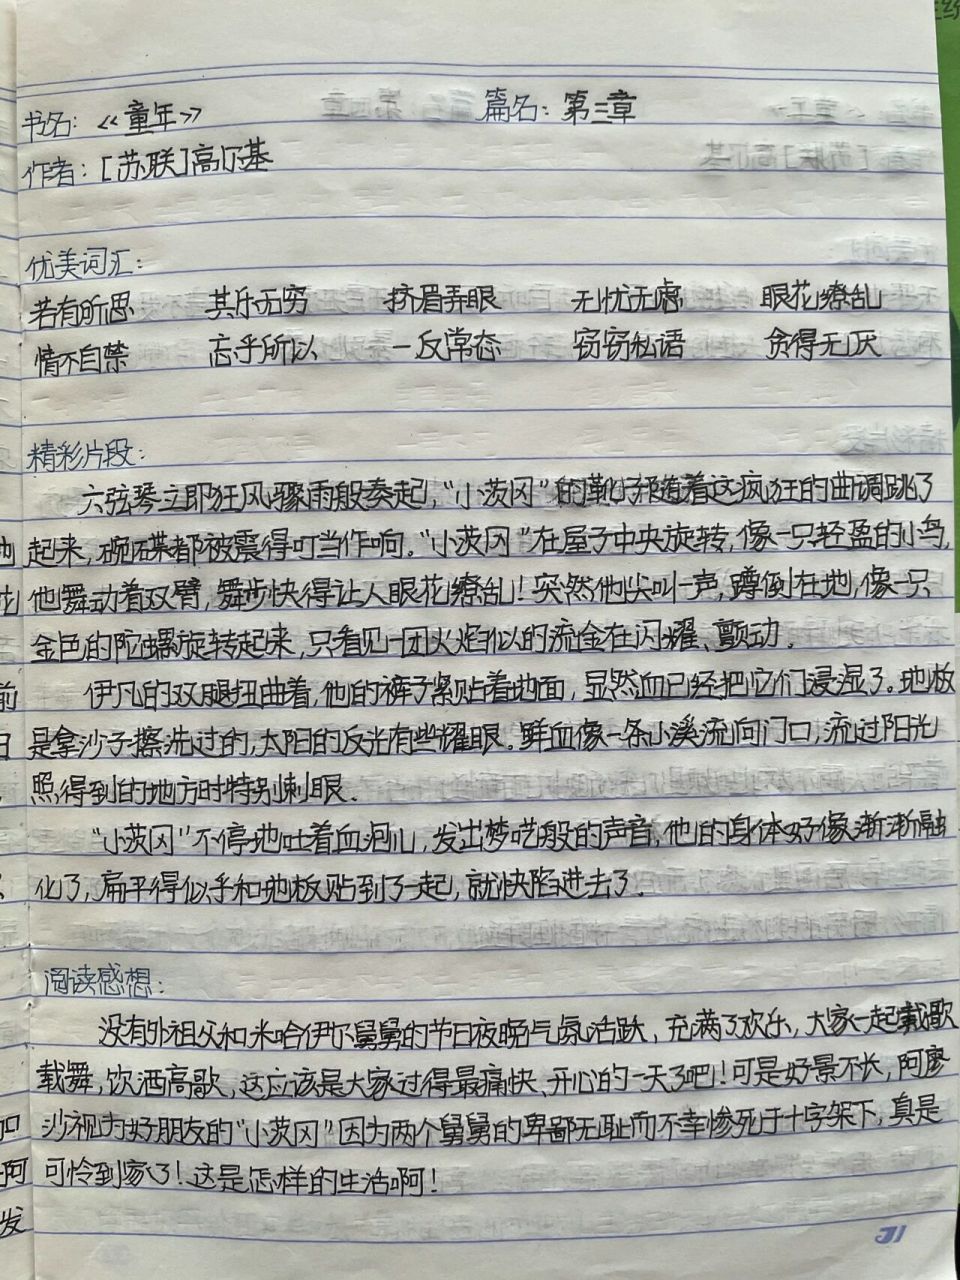 书名：《童年》 篇名：第三章
作者：[苏联]高尔基
优美词汇：
若有所思 其乐无穷 挤眉弄眼 无忧无虑 眼花缭乱
情不自禁 忘乎所以 一反常态 窃窃私语 贪得无厌
精彩片段：
六弦琴立即狂风骤雨般奏起，“小茨冈”的靴子报造着这疯狂的曲调跳了
起来，碗碟都被震得叮当作响。“小茨冈”在屋子中央旋转，像一只轻盈的小鸟，
他舞动着双臂，舞步快得让人眼花缭乱！突然他尖叫一声，蹲倒在地，像一只
金色的陀螺旋转起来，只看见一团火焰似的流金在闪耀、颤动。
伊凡的双腿扭曲着，他的裤子紧贴着地面，显然血已经把它们浸湿了。地板
是拿沙子擦洗过的，太阳的反光有些耀眼。鲜血像一条小溪流向门口，流过阳光
照得到的地方时特别刺眼。
“小茨冈”不停地吐着血泡儿，发出梦呓般的声音，他的身体好像渐渐融
化了，扁平得似乎和地板贴到了一起，就快陷进去了。
阅读感想：
没有外祖父和米哈伊尔舅舅的节日夜晚气氛活跃、充满了欢乐，大家一起载歌
载舞，饮酒高歌，这应该是大家过得最痛快、开心的一天了吧！可是好景不长，阿廖
沙视为好朋友的“小茨冈”因为两个舅舅的卑鄙无耻而不幸惨死于十字架下，真是
可怜到家了！这是怎样的生活啊！
31